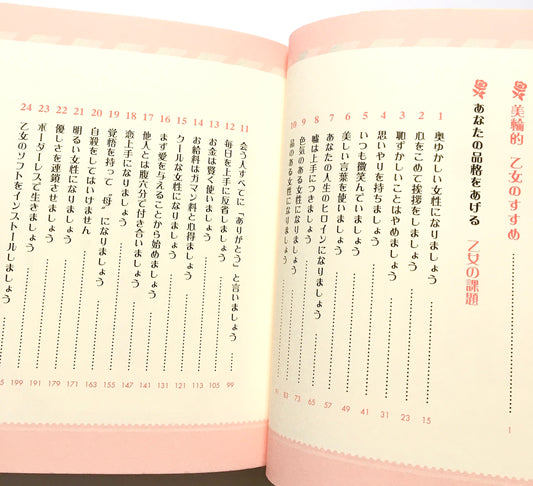 美輪的 乙女のすすめ 1
あなたの品格をあげる 乙女の課題
1 奥ゆかしい女性になりましょう 15
2 心をこめて挨拶をしましょう 23
3 恥ずかしいことはやめましょう 31
4 思いやりを持ちましょう 41
5 いつも微笑んでいましょう 49
6 美しい言葉を使いましょう 57
7 あなたの人生のヒロインになりましょう 65
8 嘘は上手につきましょう 73
9 色気のある女性になりましょう 83
10 品のある女性になりましょう
11 会う人すべてに“ありがとう”と言いましょう 99
12 毎日を上手に反省しましょう 105
13 お金は賢く使いましょう 113
14 お給料はガマン料と心得ましょう 121
15 クールな女性になりましょう 131
16 まず愛を与えることから始めましょう 141
17 他人とは腹六分で付き合いましょう 147
18 恋上手になりましょう 155
19 覚悟を持って“母”になりましょう 163
20 自殺をしてはいけません 171
21 明るい女性になりましょう 179
22 優しさを連鎖させましょう 191
23 ボーダーレスで生きましょう 199
24 乙女のソフトをインストールしましょう